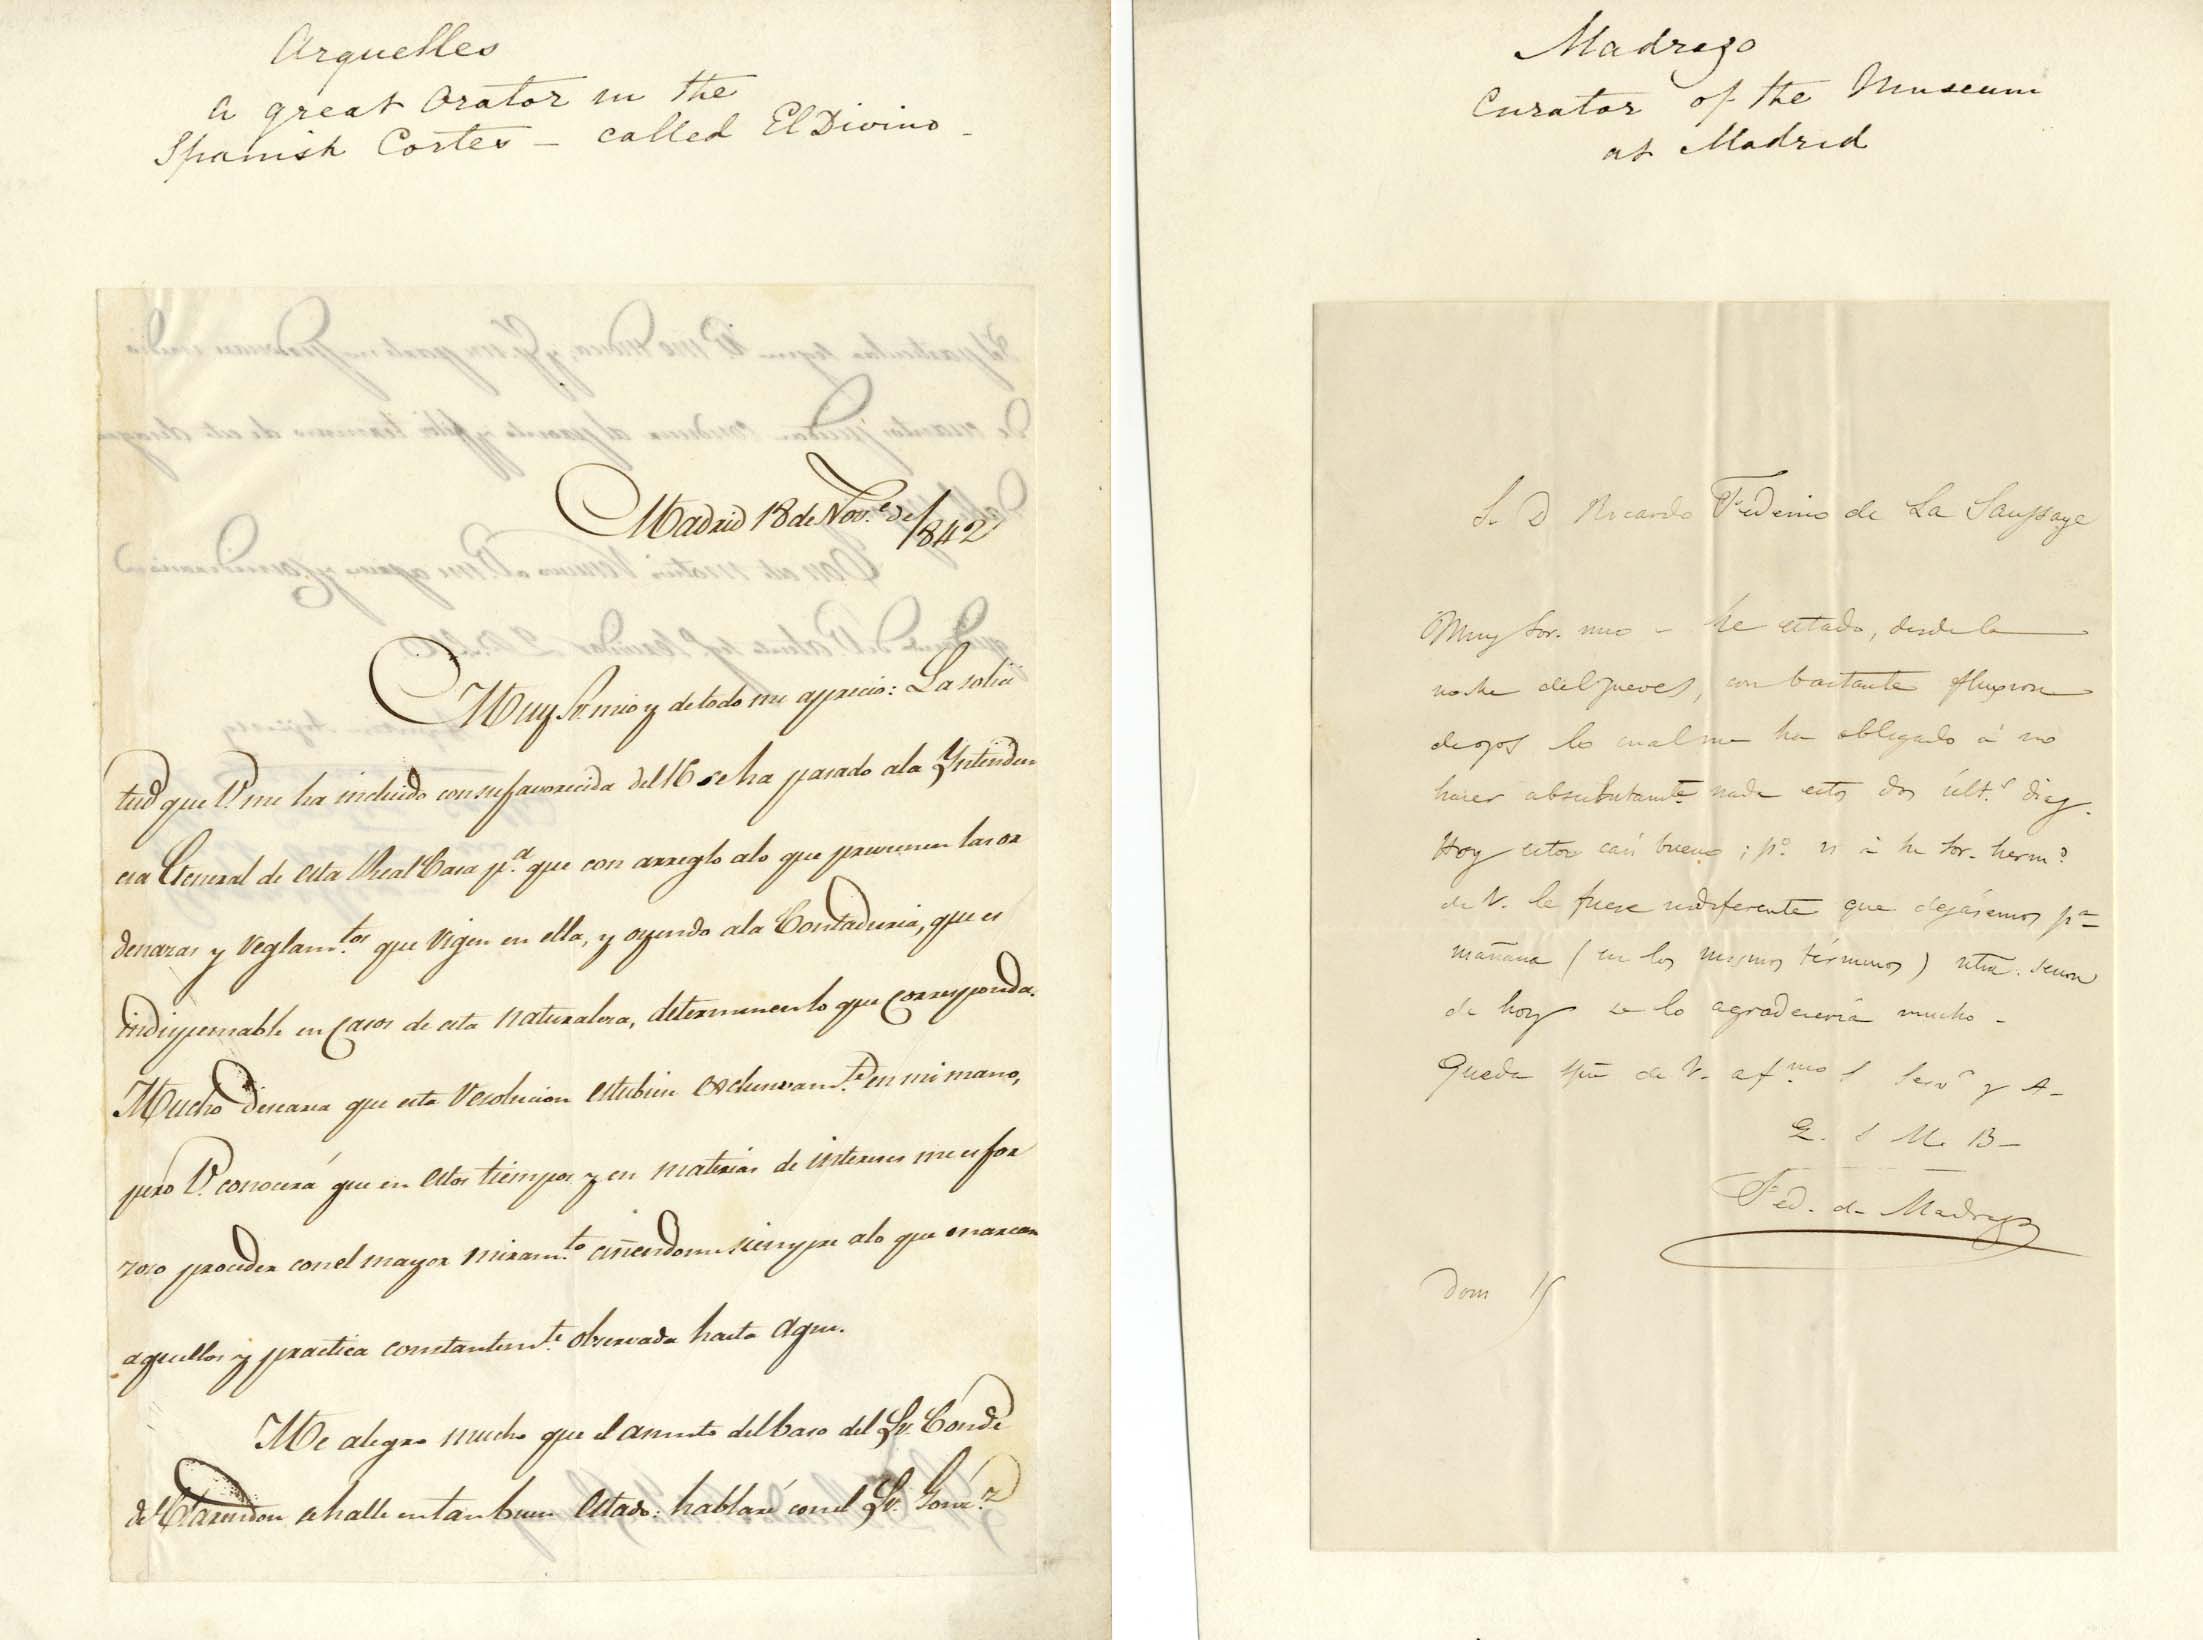 Arguelles
a great Orator in the
Spanish Cortes - called El Divino -
Madrid 18 de Nov.e de 1842
Muy Sr. mio y de todo mi aprecio: La solici
tud que V. me ha incluido con su favorecida del 16 se ha pasado ala Yntenden
cia General de esta Real Casa p.a que con arreglo alo que previenen las or
denanzas y Reglam.tos que rigen en ella, y oyendo ala Contaduria, que es
indispensable en casos de esta naturaleza, determine lo que corresponda.
Mucho desearia que esta resolucion estubiese exclusivam.te en mi mano,
pero V. conocerá que en estos tiempos y en materias de intereses me es for
zoso proceder con el mayor miram.to ciñendome siempre alo que marcan
aquellos y practica constantem.te observada hasta aqui.
Me alegro mucho que el asunto del Caso del Sr. Conde
de Clarendon se halle en tan buen estado: hablaré con el Sr. Gonz.z
Madrazo
Curator of the Museum
at Madrid
Sr D Ricardo Federico de La Saussaye
Muy Sor. mio - he estado, desde la
noche del Jueves, con bastante fluxion
de ojos lo cual me ha obligado á no
hacer absolutamte. nada estos dos últ.s dias.
Hoy estoy casi bueno; po. si á su Sor. herm.o
de V. le fuese indiferente que dejásemos pa.
mañana (en los mismos términos) ntra. sesion
de hoy se lo agradeceria mucho -
Queda spre de V. af.mo S Serv.r y A-
Q. S M. B-
Fed. de Madrazo
Dom 15